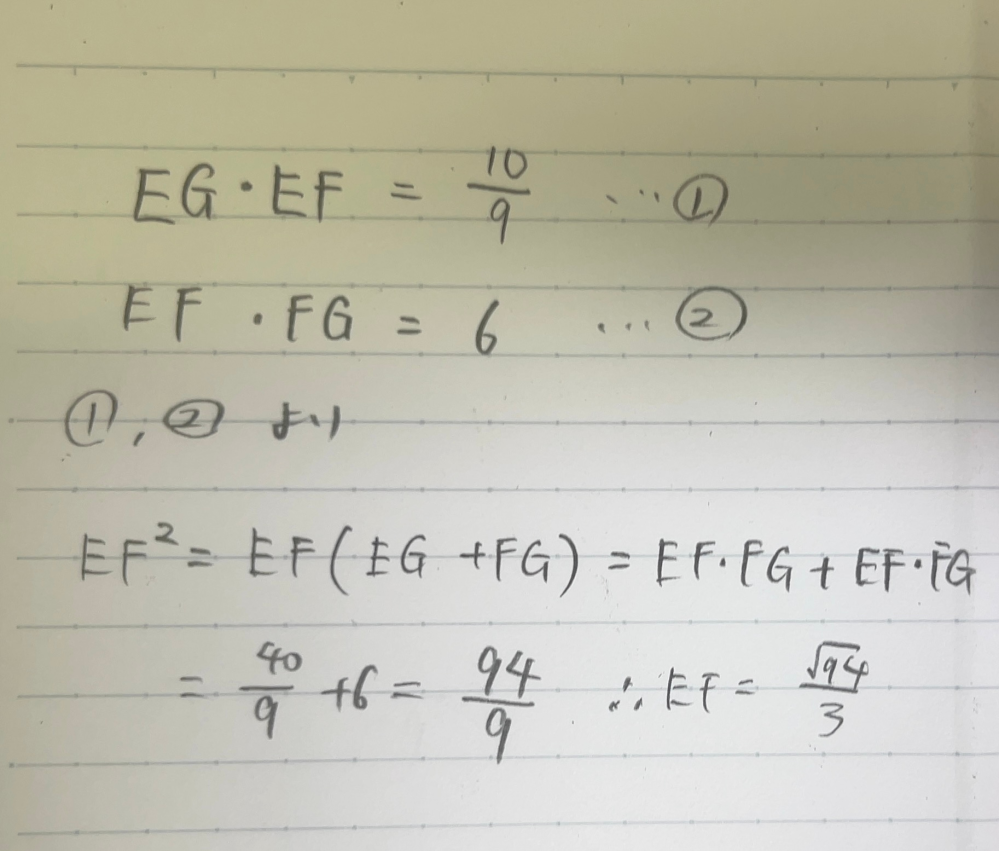 EG・EF = 10/9 …①
EF・FG = 6 …②
①,② より
EF² = EF(EG+FG) = EF・FG + EF・FG
= 40/9 +6 = 94/9 ∴EF = √94/3